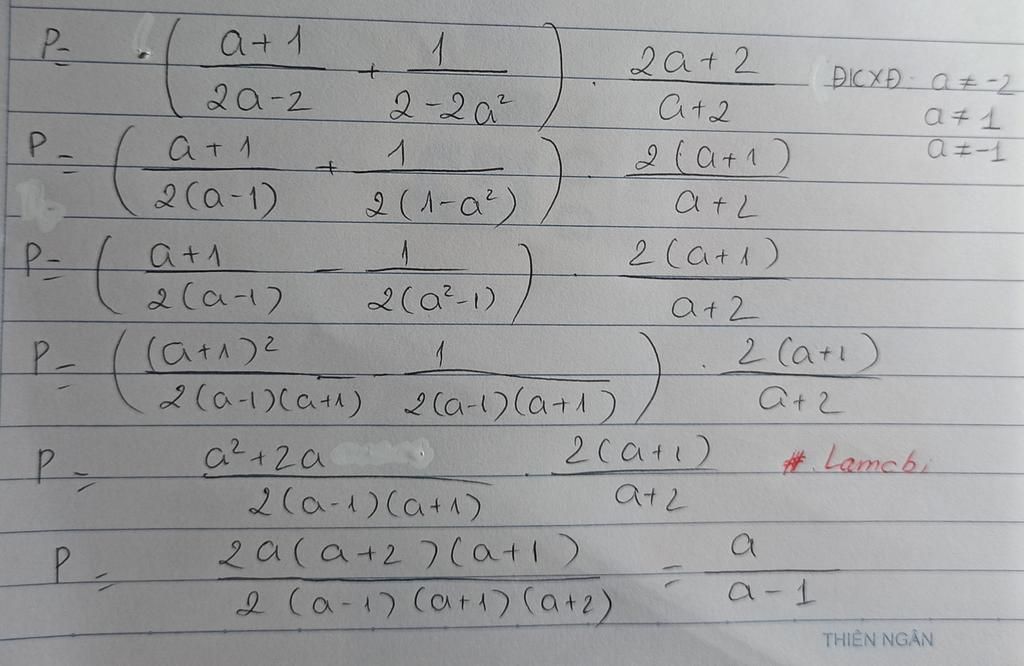 P = ( (a+1)/(2a-2) + 1/(2-2a²) ) . (2a+2)/(a+2) ĐKXĐ: a ≠ -2
a ≠ 1
a ≠ -1
P = ( (a+1)/(2(a-1)) + 1/(2(1-a²)) ) . (2(a+1))/(a+2)
P = ( (a+1)/(2(a-1)) - 1/(2(a²-1)) ) . (2(a+1))/(a+2)
P = ( (a+1)²/(2(a-1)(a+1)) - 1/(2(a-1)(a+1)) ) . (2(a+1))/(a+2)
P = (a²+2a)/(2(a-1)(a+1)) . (2(a+1))/(a+2) #.Lamcbi
P = (2a(a+2)(a+1))/(2(a-1)(a+1)(a+2)) = a/(a-1)
THIÊN NGÂN